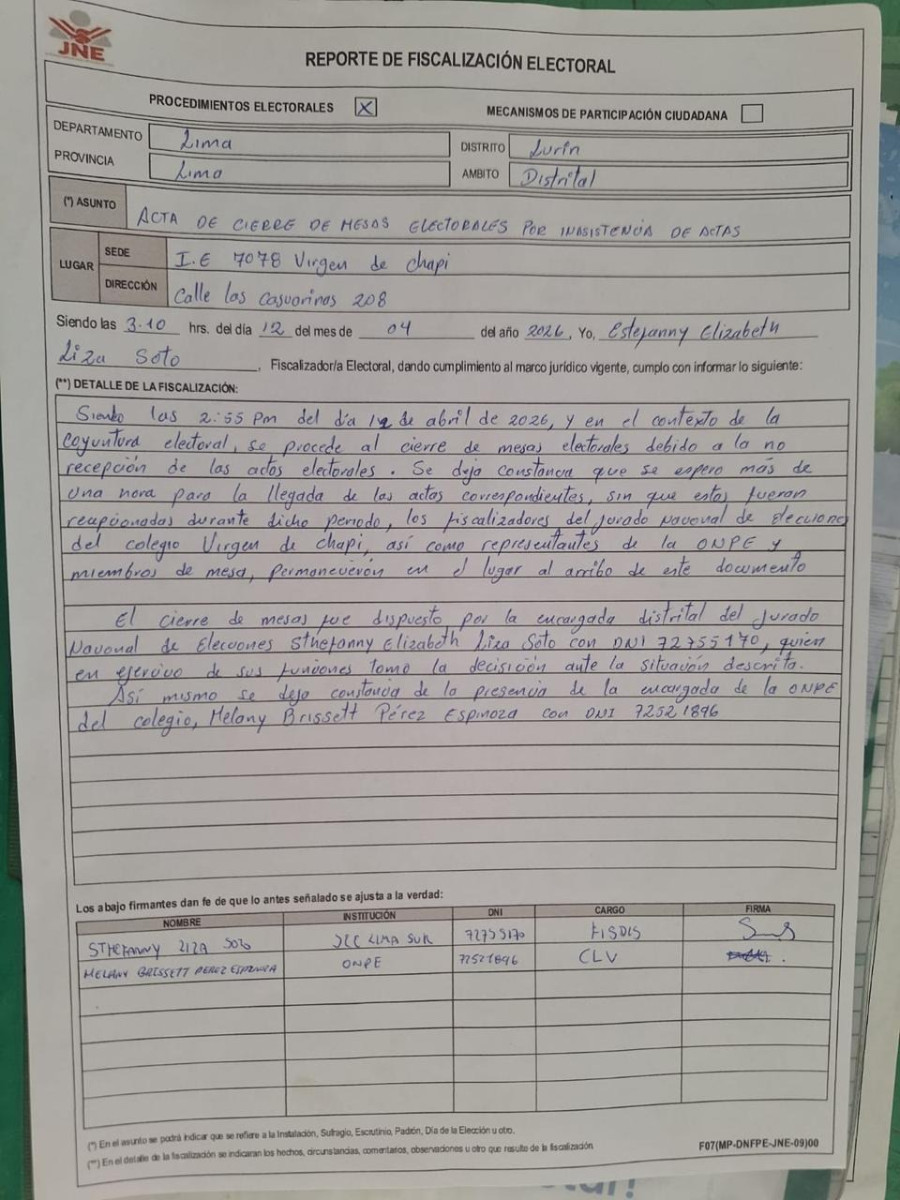 JNE
REPORTE DE FISCALIZACIÓN ELECTORAL
PROCEDIMIENTOS ELECTORALES X MECANISMOS DE PARTICIPACIÓN CIUDADANA
DEPARTAMENTO Lima DISTRITO Lurín
PROVINCIA Lima AMBITO Distrital
(*) ASUNTO ACTA DE CIERRE DE MESAS ELECTORALES POR INASISTENCIA DE ACTAS
LUGAR SEDE I.E 7078 Virgen de chapi
DIRECCIÓN Calle las casuarinas 208
Siendo las 3:10 hrs. del día 12 del mes de 04 del año 2026, Yo, Estefanny Elizabeth
Liza Soto, Fiscalizador/a Electoral, dando cumplimiento al marco jurídico vigente, cumplo con informar lo siguiente:
(**) DETALLE DE LA FISCALIZACIÓN:
Siendo las 2:55 pm del día 12 de abril de 2026, y en el contexto de la
coyuntura electoral, se procede al cierre de mesas electorales debido a la no
recepción de las actas electorales. Se deja constancia que se espero más de
una hora para la llegada de las actas correspondientes, sin que estas fueran
recepcionadas durante dicho periodo, los fiscalizadores del jurado Nacional de elecciones
del colegio Virgen de chapi, así como representantes de la ONPE y
miembros de mesa, permanecieron en el lugar al arribo de este documento
El cierre de mesas fue dispuesto por la encargada distrital del Jurado
Nacional de Elecciones Sthefanny Elizabeth Liza Soto con DNI 72755170, quien
en ejercicio de sus funciones tomo la decisición ante la situación descrita.
Así mismo se deja constancia de la presencia de la encargada de la ONPE
del colegio, Melany Brissett Pérez Espinoza con DNI 72521896
Los abajo firmantes dan fe de que lo antes señalado se ajusta a la verdad:
NOMBRE INSTITUCIÓN DNI CARGO FIRMA
STHEFANNY LIZA SOTO JEE LIMA SUR 72755170 FISDIS
MELANY BRISSETT PEREZ ESPINOZA ONPE 72521896 CLV
(*) En el asunto se podrá indicar que se refiere a la Instalación, Sufragio, Escrutinio, Padrón, Día de la Elección u otro.
(**) En el detalle de la fiscalización se indicaran los hechos, circunstancias, comentarios, observaciones u otro que resulte de la fiscalización
F07(MP-DNFPE-JNE-09)00